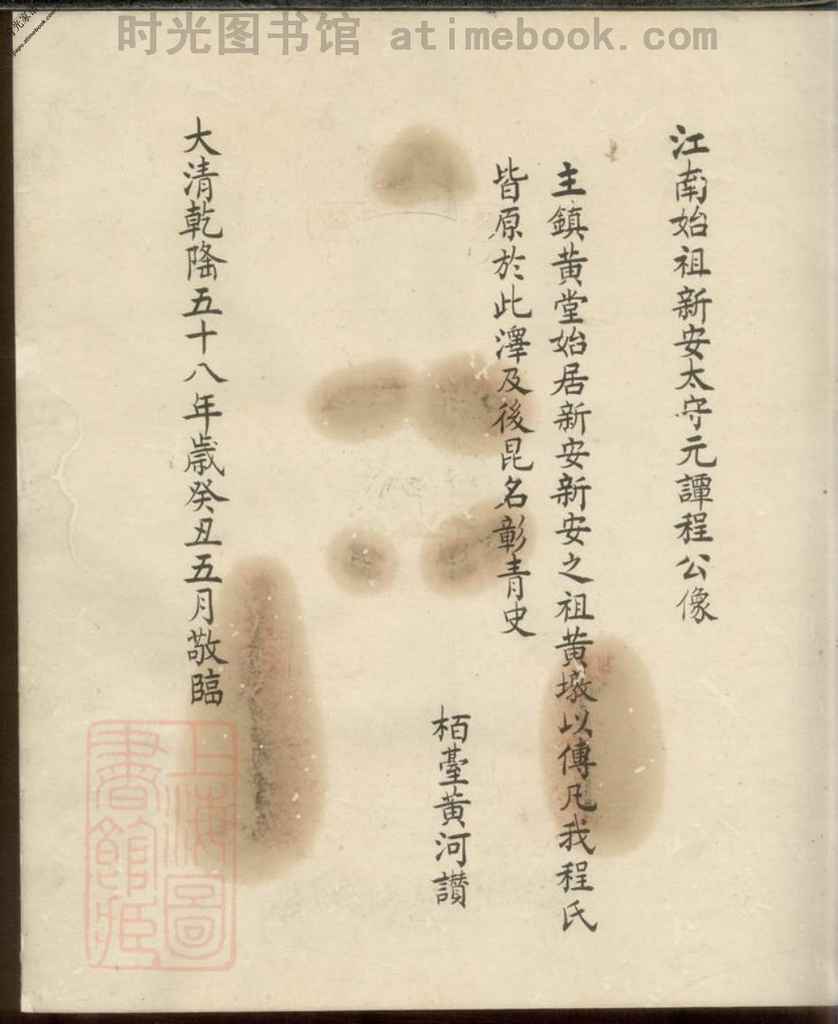 时光图书馆 atimebook.com
江南始祖新安太守元譚程公像
主鎮黄堂始居新安新安之祖黄墩以傳凡我程氏
皆原於此澤及後昆名彰青史
栢臺黄河讃
大清乾隆五十八年歲癸丑五月敬臨
上海圖
書館藏